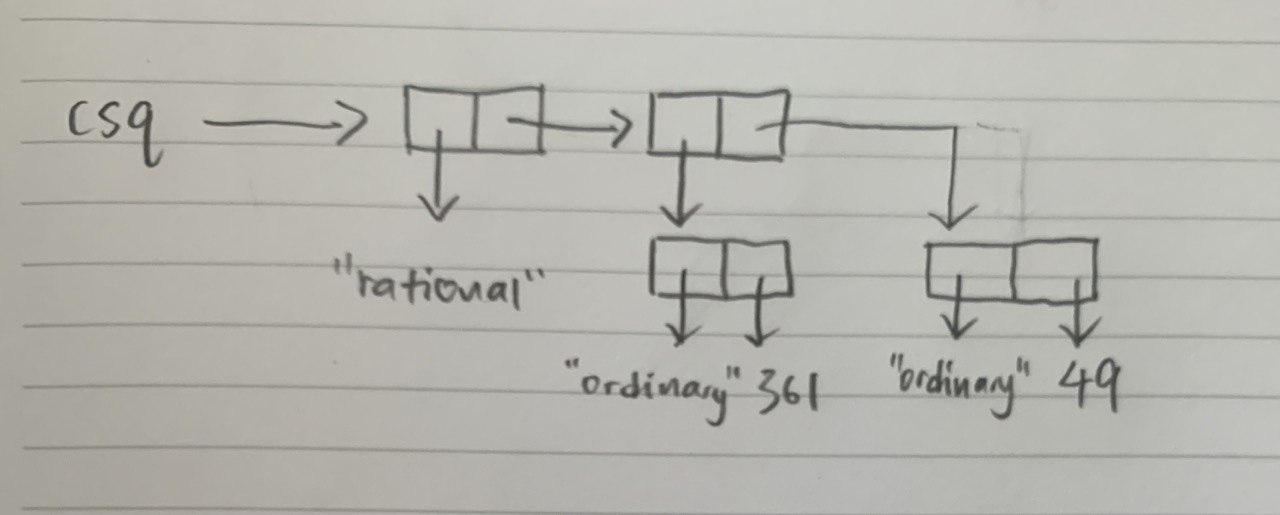 csq
"rational"
"ordinary" 361 "ordinary" 49